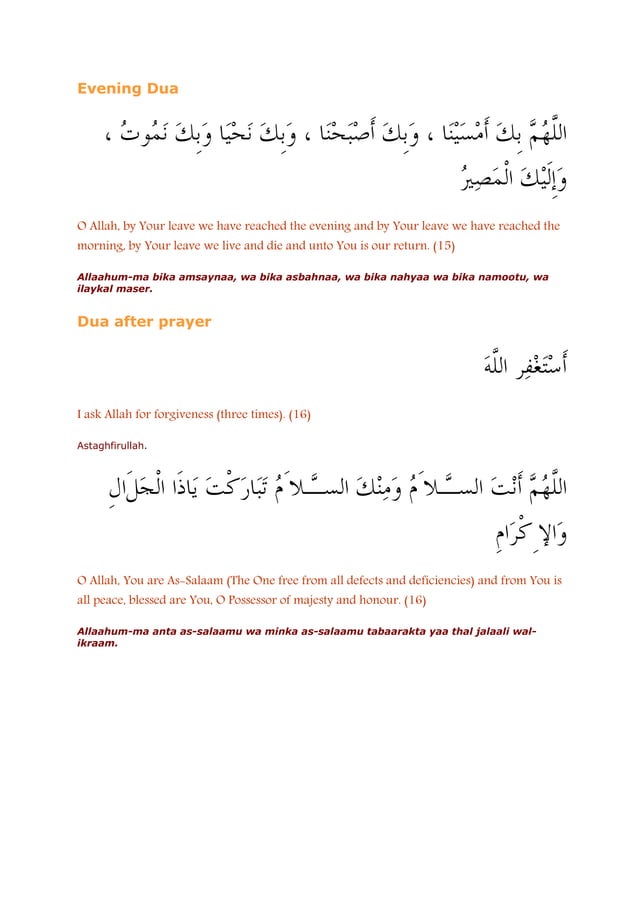 Evening Dua
اللَّهُمَّ بِكَ أَمْسَيْنَا ، وَبِكَ أَصْبَحْنَا ، وَبِكَ نَحْيَا وَبِكَ نَمُوتُ ،
وَإِلَيْكَ الْمَصِيرُ
O Allah, by Your leave we have reached the evening and by Your leave we have reached the
morning, by Your leave we live and die and unto You is our return. (15)
Allaahum-ma bika amsaynaa, wa bika asbahnaa, wa bika nahyaa wa bika namootu, wa
ilaykal maser.
Dua after prayer
أَسْتَغْفِر اللَّهَ
I ask Allah for forgiveness (three times). (16)
Astaghfirullah.
اللَّهُمَّ أَنْتَ الســَّلاَمُ وَمِنْكَ الســَّلاَمُ تَبَارَكْتَ يَاذَا الْجَلَالِ
وَالإِكْرَامِ
O Allah, You are As-Salaam (The One free from all defects and deficiencies) and from You is
all peace, blessed are You, O Possessor of majesty and honour. (16)
Allaahum-ma anta as-salaamu wa minka as-salaamu tabaarakta yaa thal jalaali wal-
ikraam.